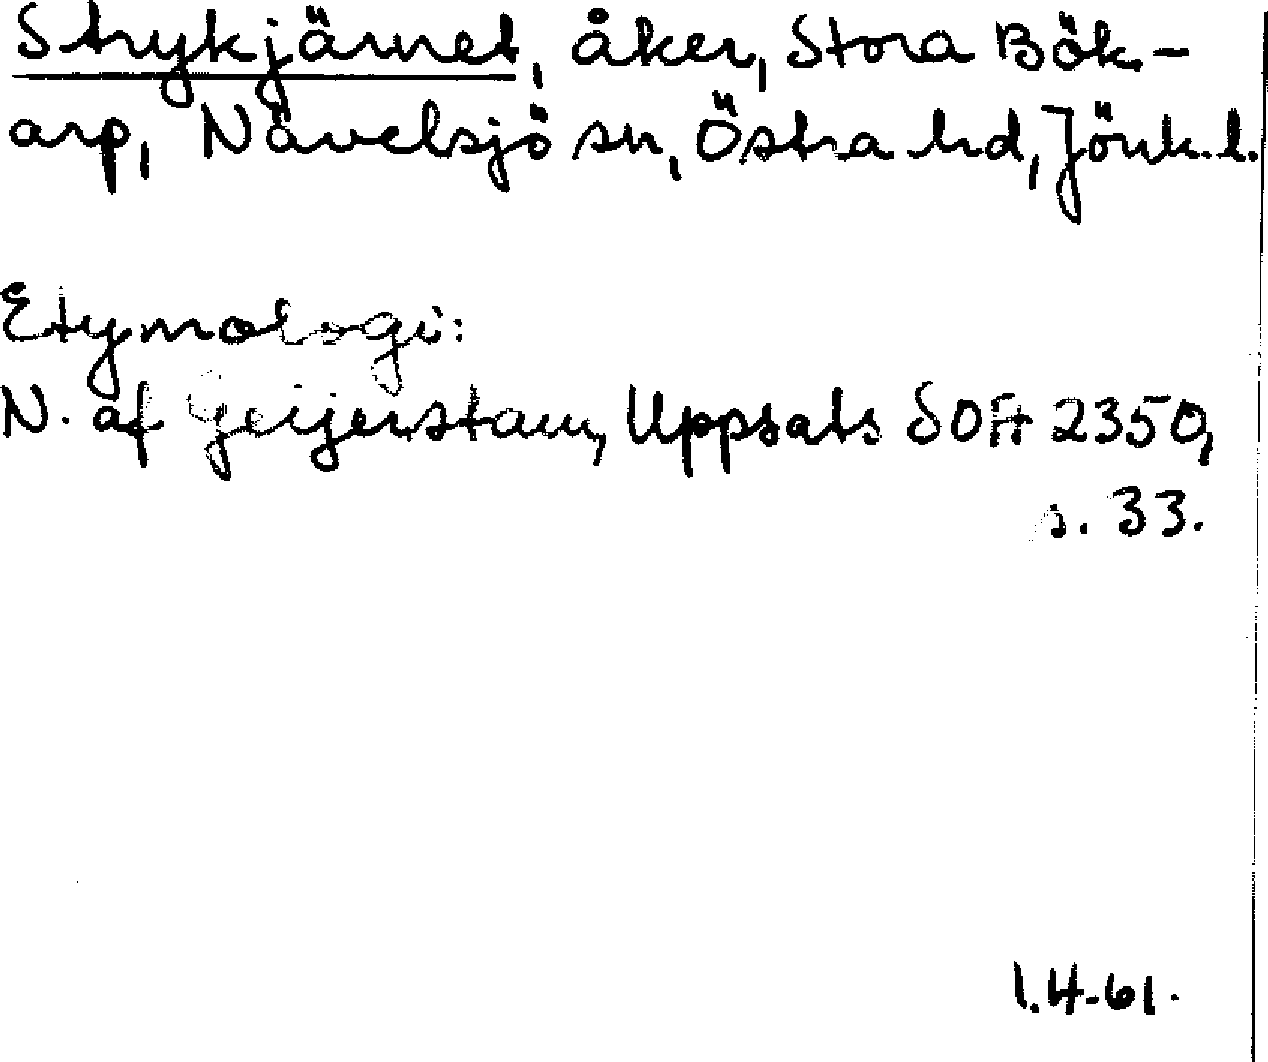 Strykjärnet, åker, Stora Bök-
arp, Nävelsjö sn, Östra hd, Jönk. l.
Etymologi:
N. af Geijerstam, Uppsats SOA 2350,
s. 33.
I.H-61.